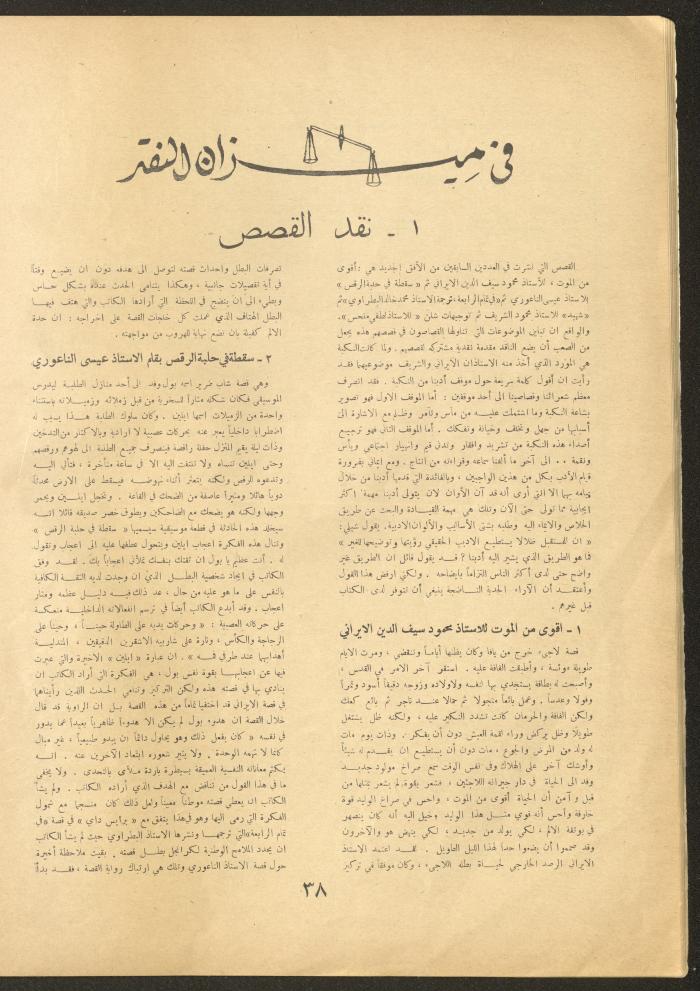 في ميزان النقد
١ ـ نقد القصص
القصص التي نشرت في العددين السابقين من الأفق الجديد هي : أقوى
من الموت ، للأستاذ محمود سيف الدين الايراني ثم « سقطة في حلبة الرقص »
للاستاذ عيسى الناعوري ثم « في تمام الرابعة ، ترجمة الاستاذ محمد خالد البطراوي » ثم
« شهيد » للاستاذ محمود الشريف ثم توجيهات شلن « للاستاذ لطفي ملحس ».
والواقع ان تباين الموضوعات التي تناولها القصاصون في قصصهم هذه يجعل
من الصعب أن يضع الناقد مقدمة نقدية مشتركه لقصصهم . ولما كانت النكبة
هي المورد الذي أخذ منه الاستاذان الايراني والشريف موضوعيهما فقد
رأيت ان أقول كلمة سريعة حول موقف أدبنا من النكبة . فقد انصرف
معظم شعرائنا وقصاصينا الى أحد موقفين : أما الموقف الاول فهو تصوير
بشاعة النكبة وما اشتملت عليه من مآس وتآمر وظلم مع الاشارة الى
أسبابها من جهل وتخلف وخيانة وتفكك . أما الموقف الثاني فهو ترجيع
أصداء هذه النكبة من تشريد وافقار وتدني قيم وانهيار اجتماعي ويأس
ونقمة .. الى آخر ما ألفنا سماعه وقراءته من انتاج . ومع إيماني بضرورة
قيام الأدب بكل من هذين الواجبين ، وبالفائدة التي قدمها أدبنا من خلال
قيامه بهما الا انني أرى أنه قد آن الأوان لان يتولى أدبنا مهمة اكثر
ايجابية مما تولى حتى الآن وتلك هي مهمة القيادة والبحث عن طريق
الخلاص والايماء اليه وطلبه بشتى الأساليب والألوان الادبية. يقول شيلي :
« ان المستقبل ضلالا يستطيع الاديب الحقيقي رؤيتها وتوضيحها للغير »
فما هو الطريق الذي يشير اليه أدبنا ؟ قد يقول قائل ان الطريق غير
واضح حتى لدى أكثر الناس التزاماً بايضاحه . ولكني ارفض هذا القول
وأعتقد أن الآراء الجدية الناضجة ينبغي أن تتوفر لدى الكتاب
قبل غيرهم .
١ ـ اقوى من الموت للاستاذ محمود سيف الدين الايراني
قصة لاجيء خرج من يافا وكان يظنها أياماً وتنقضي ، ومرت الايام
طويلة موئسة ، وأطبقت الفاقة عليه . استقر آخر الامر في القدس ،
وأصبحت له بطاقة يستجدي بها لنفسه ولاولاده وزوجه دقيقاً أسود وتمراً
وفولا وعدساً . وعمل بائعاً متجولا ثم حمالا عند تاجر ثم بائع كعك
ولكن الفاقة والحرمان كانت تشدد النكير عليه ، ولكنه ظل يشتغل
طويلا وظل يركض وراء لقمة العيش دون أن يفكر . وذات يوم مات
له ولد من المرض والجوع ، مات دون أن يستطيع ان يقدم له شيئاً
وأوشك آخر على الهلاك وفي نفس الوقت سمع صراخ مولود جديد
وفد الى الحياة في دار جيرانه اللاجئين ، فشعر بقوة لم يشعر بمثلها من
قبل وآمن أن الحياة أقوى من الموت ، واحس في صراخ الوليد قوة
خارقة وأحس أنه قوي مثل هذا الوليد وخيل اليه أنه كان ينصهر
في بوتقة الالم ، لكي يولد من جديد ، لكي ينهض هو والآخرون
وقد صمموا أن يضعوا حداً لهذا الليل الطويل . لقد اعتمد الاستاذ
الايراني الرصد الخارجي لحياة بطله اللاجيء ، وكان موفقاً في تركيز
تصرفات البطل واحداث قصته لتوصل الى هدفه دون ان يضيع وقتاً
في أية تفصيلات جانبية ، وهكذا يتنامى الحدث عنده بشكل حساس
وبطيء الى ان ينضج في اللحظة التي أرادها الكاتب والتي هتف فيها
البطل الهتاف الذي عملت كل خلجات القصة على إخراجه : ان حدة
الالم كفيلة بأن تضع نهاية للهروب من مواجهته .
٢ ـ سقطة في حلبة الرقص بقلم الاستاذ عيسى الناعوري
وهي قصة شاب ضرير اسمه بول وفد الى أحد منازل الطلبة ليدرس
الموسيقى فكان شكله مثاراً للسخرية من قبل زملائه وزميلاته باستثناء
واحدة من الزميلات اسمها ايلين . وكان سلوك الطلبة هذا يسبب له
اضطرابا داخلياً يعبر عنه بحركات عصبية لا ارادية وبالاكثار من التدخين
وذات ليلة يقيم المنزل حفلة راقصة فينصرف جميع الطلبة الى لهوهم ورقصهم
وحتى ايلين تنساه ولا تلتفت اليه الا في ساعة متأخرة ، فتأتي اليه
وتدعوه للرقص ولكنه يتعثر أثناء نهوضه فيسقط على الارض محدثاً
دوياً هائلا ومثيراً عاصفة من الضحك في القاعة . وتخجل ايلين ويحمر
وجهها ولكنه هو يضحك مع الضاحكين ويطوق خصر صديقته قائلا انه
سيخلد هذه الحادثة في قطعة موسيقية سيسميها « سقطة في حلبة الرقص »
وتنال هذه الفكرة اعجاب ايلين ويتحول عطفها عليه الى اعجاب وتقول
له . أنت عظيم يا بول ان ثقتك بنفسك تملأني اعجاباً بك . لقد وفق
الكاتب في ايجاد شخصية البطل الذي ان وجدت لديه الثقة الكافية
بالنفس على ما هو عليه من حال ، عد ذلك فيه دليل عظمه ومثار
اعجاب . وقد أبدع الكاتب أيضاً في ترسم انفعالاته الداخلية منعكسة
على حركاته العصبية : « وحركات يديه على الطاولة حيناً ، وحيناً على
الزجاجة والكأس ، وتارة على شاربيه الاشقرين الدقيقين ، المتدلية
أهدابهما عند طرفي فمه » . ان عبارة « ايلين » الاخيرة والتي عبرت
فيها عن اعجابها بقوة نفس بول ، هي الفكرة التي أراد الكاتب ان
ينادي بها في قصته هذه ولكن التركيز وتنامي الحدث اللذين رأيناهما
في قصة الايراني قد اختفيا تماما من هذه القصة بل ان الراوية قد قال
خلال القصة ان هدوء بول لم يكن الا هدوءاً ظاهرياً بعيداً عما يدور
في نفسه « كان يفعل ذلك وهو يحاول دائماً ان يبدو طبيعياً ، غير مبال
كأنما لا تهمه الوحدة . ولا يثير شعوره ابتعاد الآخرين عنه . انه
يكتم معاناته النفسية العميقة بسيطرة باردة ملأى بالتحدي . ولا يخفى
ما في هذا القول من تناقض مع الهدف الذي أراده الكاتب . ولم يشأ
الكاتب ان يعطي قصته موطناً معيناً ولعل ذلك كان منسجما مع شمول
الفكرة التي رمى اليها وهو في هذا يتفق مع « برايس داي » في قصة « في
تمام الرابعة » التي ترجمها ونشرها الاستاذ البطراوي حيث لم يشأ الكاتب
ان يحدد الملامح الوطنية لكرانجل بطل قصته . بقيت ملاحظة أخيرة
حول قصة الاستاذ الناعوري وتلك هي ارتباك رواية القصة ، فقد بدأ
٣٨